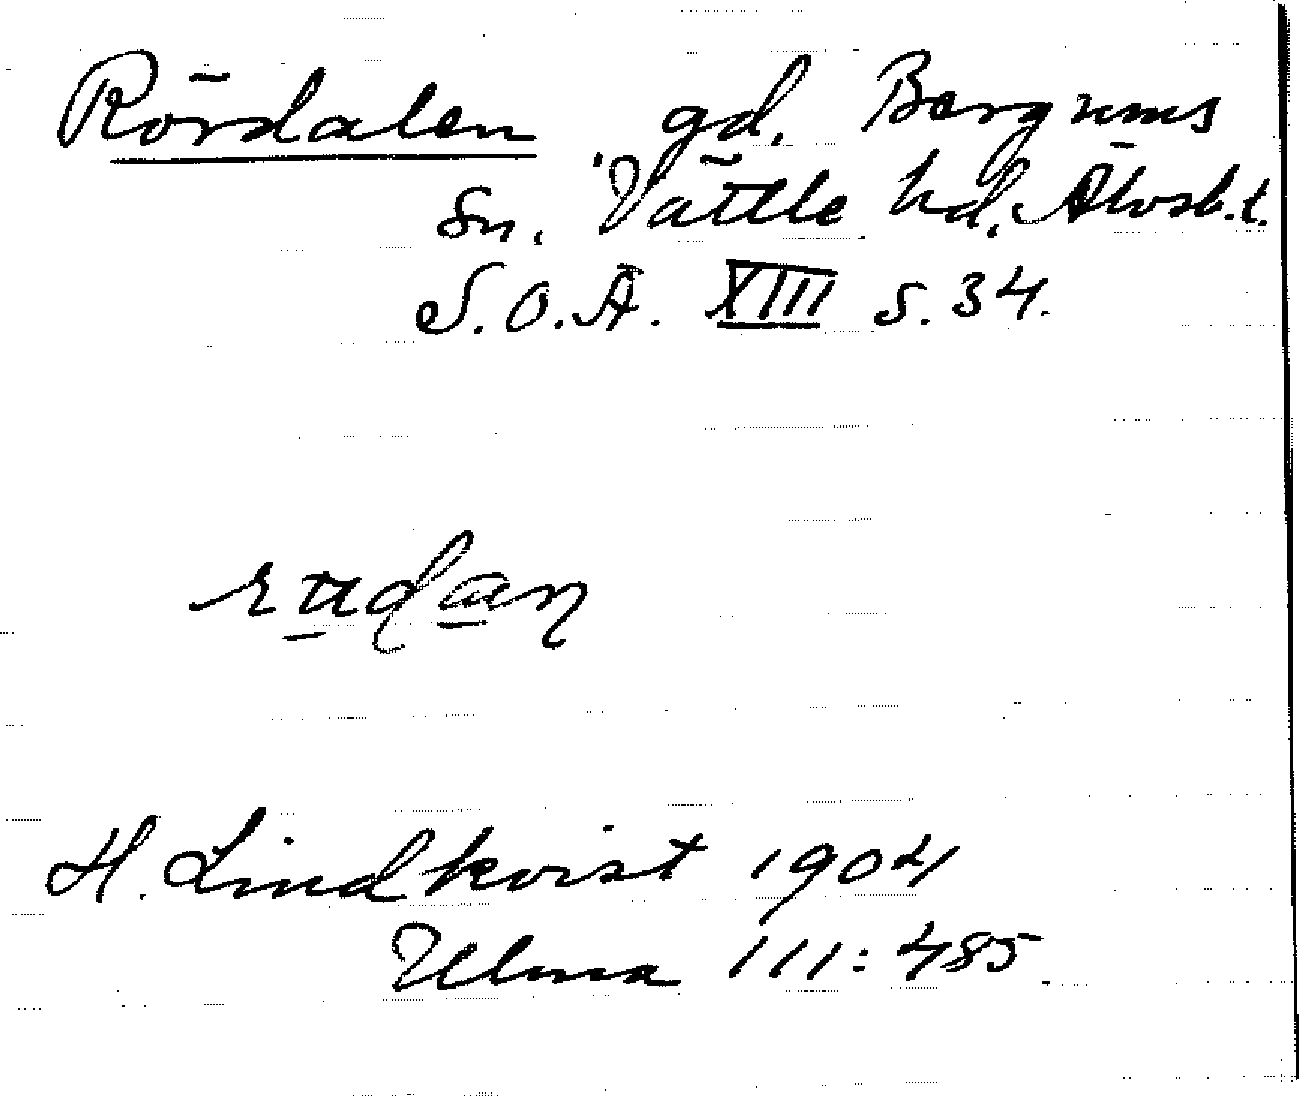 Rördalen gd. Bergums
sn. Vättle hd. Älvsb. l.
S.O.Ä. XIII s. 34.
H. Lindkvist 1904
Ulma 111:485.